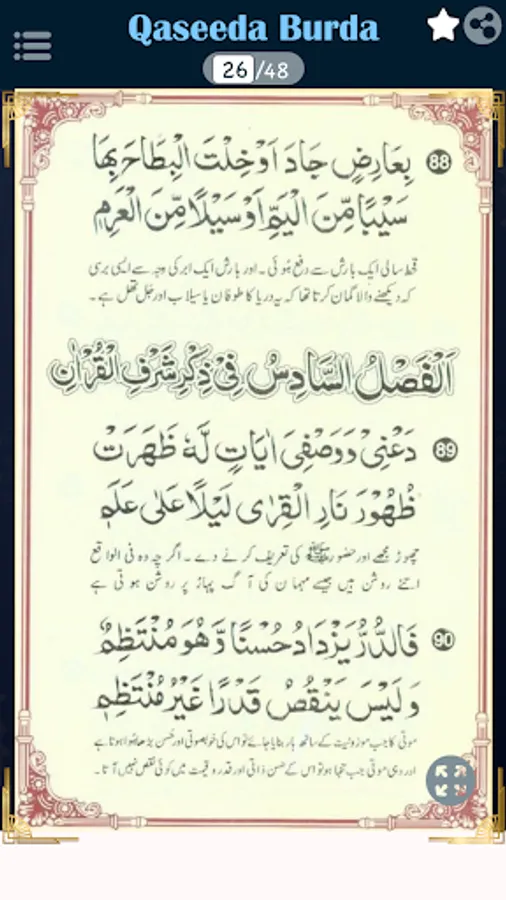 Qaseeda Burda
26/48
88 بِعَارِضٍ جَادَ اَوْ خِلْتَ الْبِطَاحَ بِهَا
سَيْبًا مِّنَ الْيَمِّ اَوْ سَيْلًا مِّنَ الْعَرِمِ
قحط سالی ایک بارش سے دفع ہوئی۔ اور بارش ایک ابر کی وجہ سے ایسی برسی
کہ دیکھنے والا گمان کرتا تھا کہ یہ دریا کا طوفان یا سیلاب اور جل تھل ہے۔
اَلْفَصْلُ السَّادِسُ فِيْ ذِكْرِ شَرَفِ الْقُرْاٰنِ
89 دَعْنِيْ وَوَصْفِيَ اٰيَاتٍ لَّهٗ ظَهَرَتْ
ظُهُوْرَ نَارِ الْقِرٰى لَيْلًا عَلٰى عَلَمٖ
چھوڑ مجھے اور حضور ﷺ کی تعریف کرنے دے۔ اگرچہ وہ فی الواقع
اتنے روشن ہیں جیسے مہمان کی آگ پہاڑ پر روشن ہوتی ہے
90 فَالدُّرُّ يَزْدَادُ حُسْنًا وَّهُوَ مُنْتَظِمٌ
وَلَيْسَ يَنْقُصُ قَدْرًا غَيْرَ مُنْتَظِمٖ
موتی کا جب موزونیت کے ساتھ ہار بنایا جائے تو اس کی خوبصورتی اور حُسن بڑھا ہوا ہوتا ہے
اور وہی موتی جب تنہا ہو تو اس کے حسن ذاتی اور قدر و قیمت میں کوئی نقص نہیں آتا۔